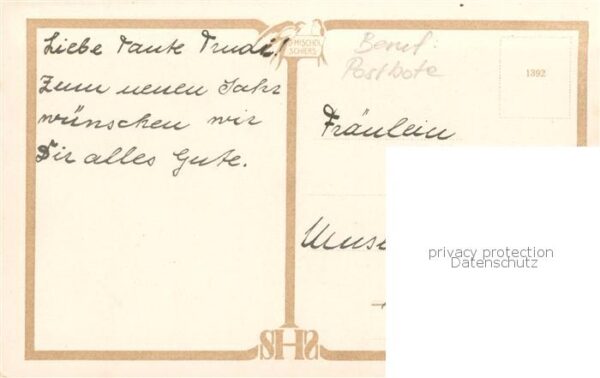 Liebe Tante Trudi!
Zum neuen Jahr
wünschen wir
Dir alles Gute.
MISCHOL
SCHIERS
Beruf:
Postbote
1392
Fräulein
privacy protection
Datenschutz
SHS